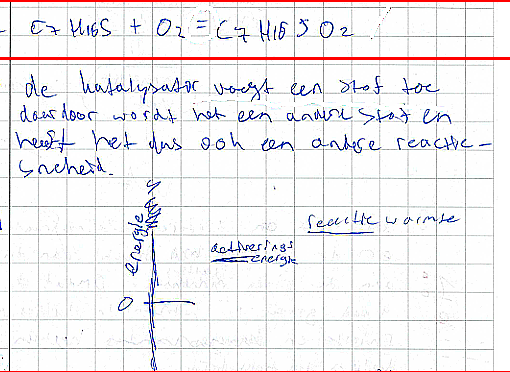 C7 H16S + O2 = C7 H16 S O2
de katalysator voegt een stof toe
daardoor wordt het een andere stof en
heeft het dus ook een andere reactie-
sneheid.
energie
reactie warmte
activerings
energie
0